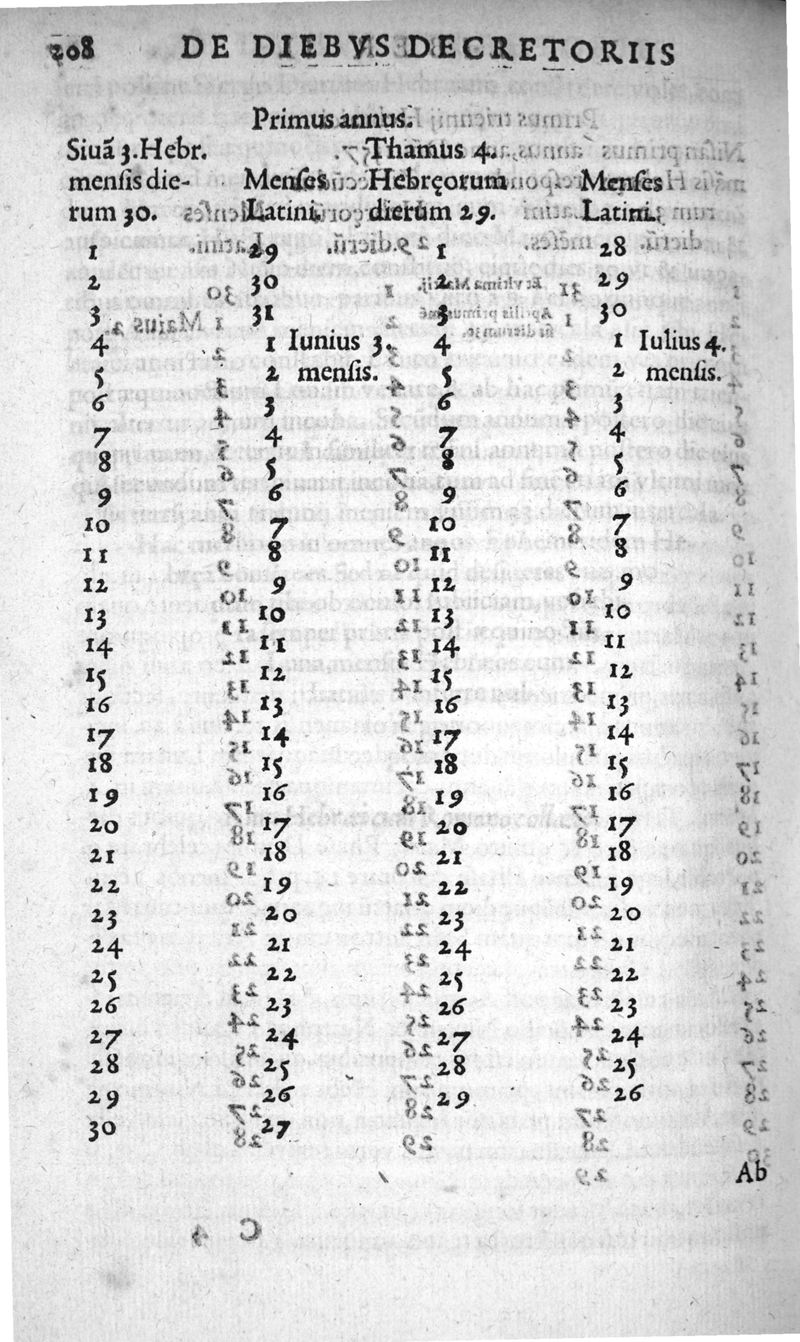 208 DE DIEBVS DECRETORIIS
Primus annus.
Siuã 3. Hebr. Thamus 4.
menſis die- Menſes Hebręorum Menſes
rum 30. Latini. dierum 29. Latini.
1 29 1 28
2 30 2 29
3 31 3 30
4 1 Iunius 3. 4 1 Iulius 4.
5 2 menſis. 5 2 menſis.
6 3 6 3
7 4 7 4
8 5 8 5
9 6 9 6
10 7 10 7
11 8 11 8
12 9 12 9
13 10 13 10
14 11 14 11
15 12 15 12
16 13 16 13
17 14 17 14
18 15 18 15
19 16 19 16
20 17 20 17
21 18 21 18
22 19 22 19
23 20 23 20
24 21 24 21
25 22 25 22
26 23 26 23
27 24 27 24
28 25 28 25
29 26 29 26
30 27
Ab